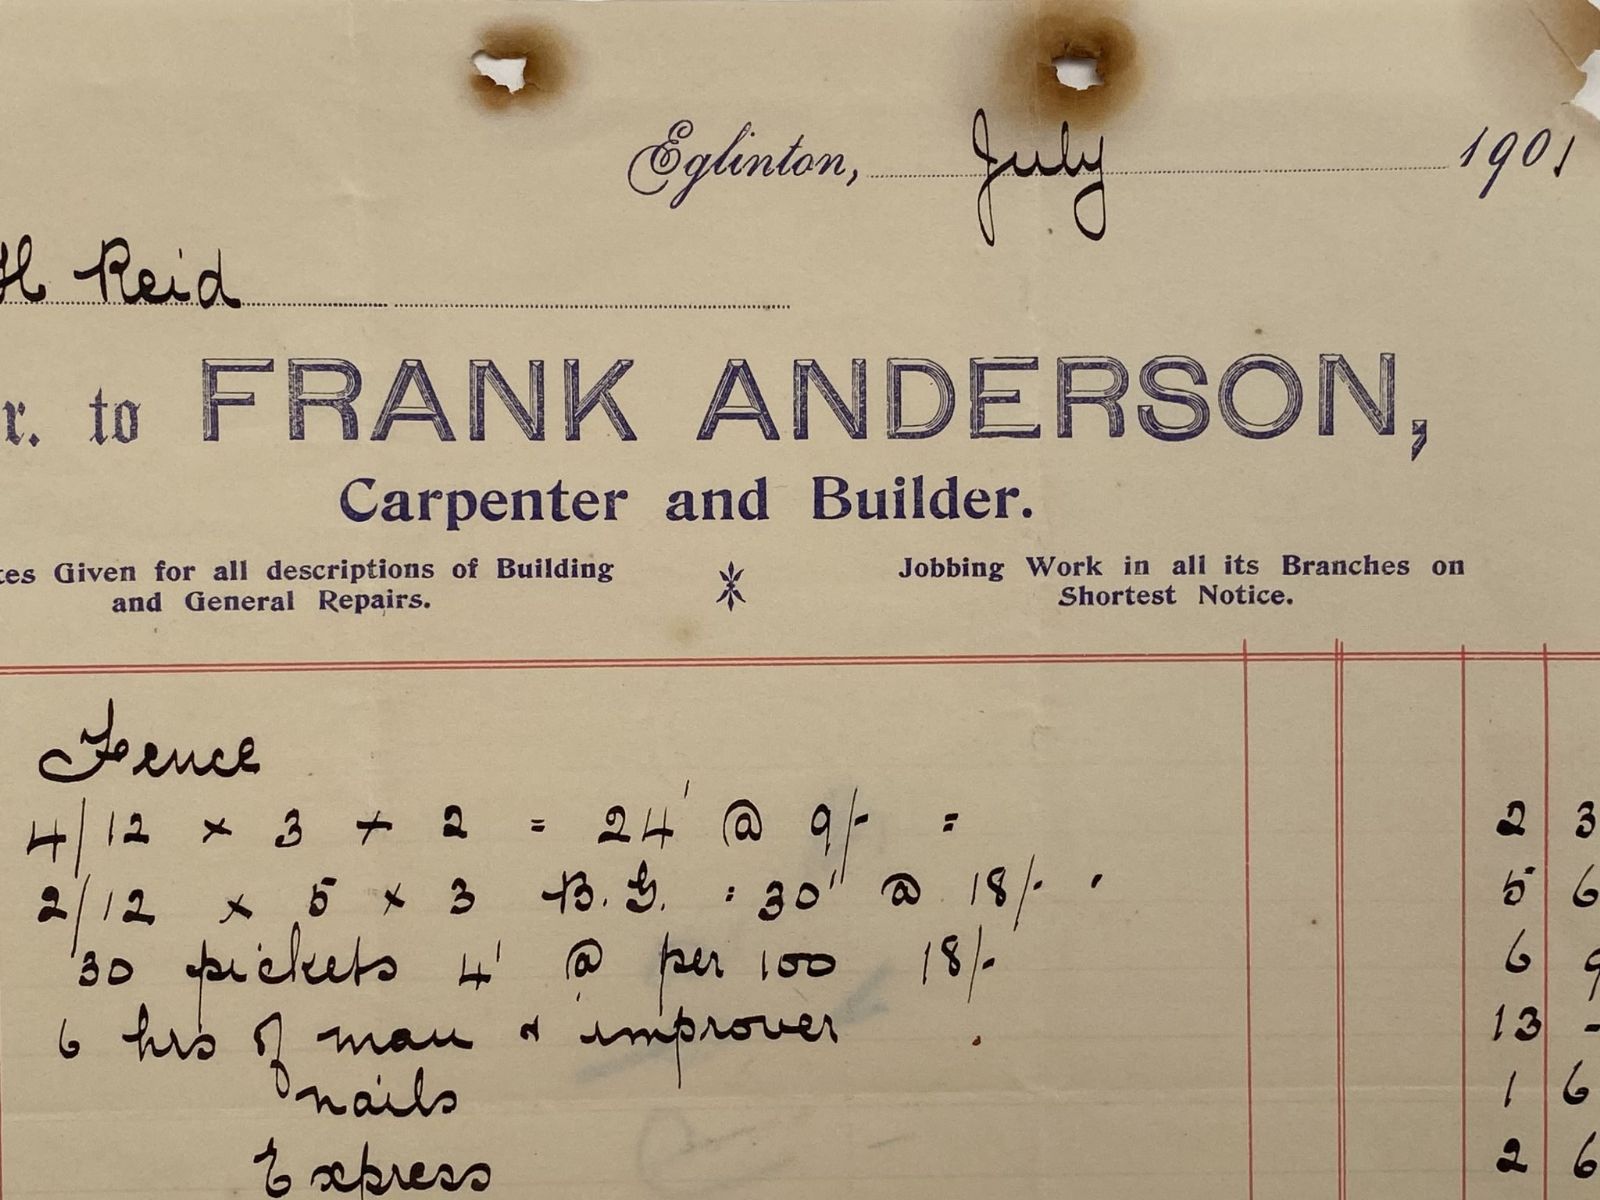 Eglinton, July 1901
H Reid
r. to FRANK ANDERSON,
Carpenter and Builder.
tes Given for all descriptions of Building
and General Repairs.
Jobbing Work in all its Branches on
Shortest Notice.
Fence
4/12 x 3 x 2 = 24' @ 9/- = 2 3
2/12 x 5 x 3 B.G. : 30' @ 18/- " 5 6
30 pickets 4' @ per 100 18/- 6 9
6 hrs of man & improver 13 -
nails 1 6
Express 2 6